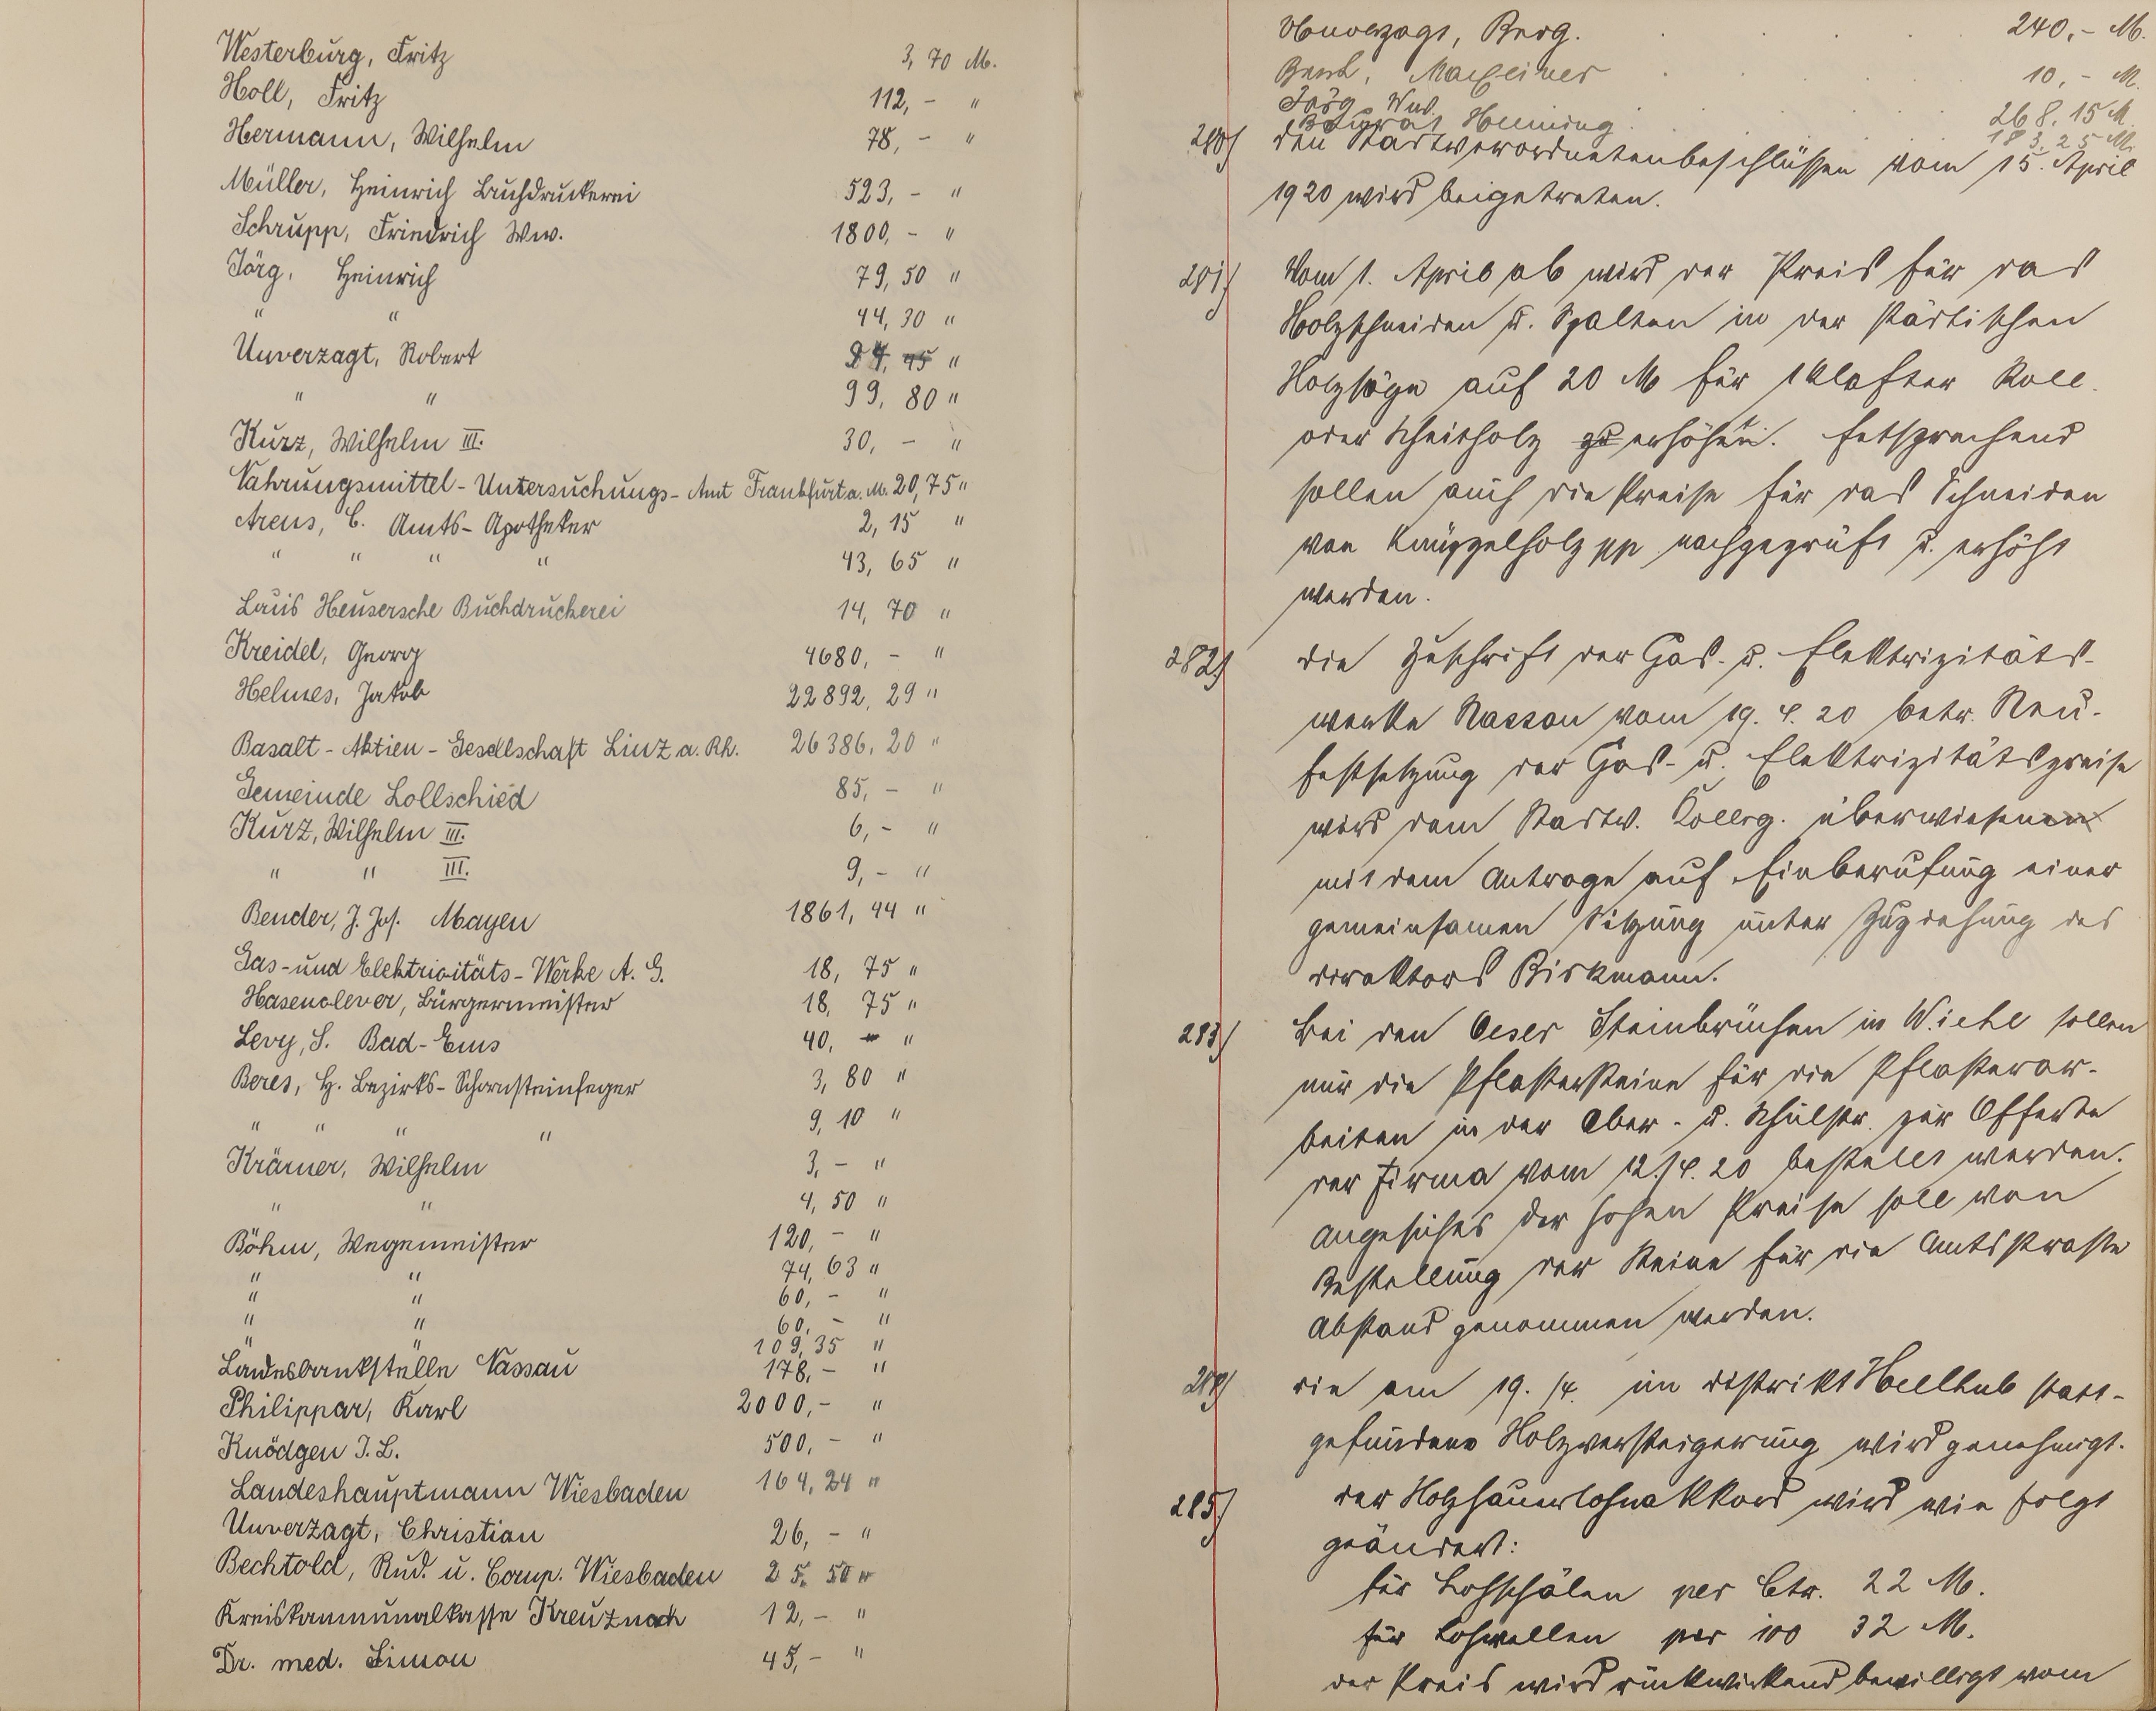 Westerburg, Fritz 3,70 M.
Holl, Fritz 112,- "
Hermann, Wilhelm 78,- "
Müller, Heinrich Buchdruckerei 523,- "
Schrupp, Friedrich Ww. 1800,- "
Jörg, Heinrich 79,50 "
" " 44,30 "
Unverzagt, Robert "
" " 99,80 "
Kurz, Wilhelm III. 30,- "
Nahrungsmittel-Untersuchungs-Amt Frankfurt a. M. 20,75 "
Arens, C. Amts-Apotheker 2,15 "
" " " " 43,65 "
Louis Heusersche Buchdruckerei 14,70 "
Kreidel, Georg 4680,- "
Helmes, Jakob 22892,29 "
Basalt-Aktien-Gesellschaft Linz a. Rh. 26386,20 "
Gemeinde Lollschied 85,- "
Kurz, Wilhelm III. 6,- "
" " III. 9,- "
Bender, J. Jos. Mayen 1861,44 "
Gas-und Elektricitäts-Werke A. G. 18,75 "
Hasenclever, Bürgermeister 18,75 "
Levy, S. Bad-Ems 40,- "
Beres, H. Bezirks-Schornsteinfeger 3,80 "
" " " " 9,10 "
Krämer, Wilhelm 3,- "
" " 4,50 "
Böhm, Wegemeister 120,- "
" " 74,63 "
" " 60,- "
" " 60,- "
" " 109,35 "
Landesbankstelle Nassau 178,- "
Philippar, Karl 2000,- "
Knödgen J. L. 500,- "
Landeshauptmann Wiesbaden 164,24 "
Unverzagt, Christian 26,- "
Bechtold, Rud. u. Comp. Wiesbaden 25,50 "
Kreiskommunalkasse Kreuznach 12,- "
Dr. med. Simon 45,- "
Unverzagt, 240,- M.
10,- M.
Jörg, Ww. 268.15 M.
Henning 183.25 M.
280) den Stadtverordnetenbeschlüssen vom 15. April
1920 wird beigetreten.
281) Vom 1. April ab wird der Preis für das
Holzschneiden u. Spalten in der städtischen
Holzsäge auf 20 M für 1 Klafter Roll
oder Scheitholz zu erhöht. Entsprechend
sollen auch die Preise für das Schneiden
von Knüppelholz pp nachgeprüft u. erhöht
werden.
282) die Zuschrift der Gas- u. Elektrizitäts-
werke Nassau vom 19. 4. 20 betr. Neu-
festsetzung der Gas- u. Elektrizitätspreise
wird dem Stadtv. Kolleg. überwiesen
mit dem Antrage auf Einberufung einer
gemeinsamen Sitzung unter Zuziehung des
direktors Birkmann.
283) bei den Oeser Steinbrüchen in Wiehl sollen
nur die Pflastersteine für die Pflasterar-
beiten in der Ober- u. Schulstr. zur Offerte
der Firma vom 12./4. 20 bestellt werden.
Angesichts der hohen Preise soll von
Bestellung der Steine für die Amtsstraße
Abstand genommen werden.
284) die am 19. /4. im distrikt Hellhub statt-
gefundene Holzversteigerung wird genehmigt.
285) der Holzhauerlohnakkord wird wie folgt
geändert:
für Lohschälen per Ctr. 22 M.
für Lohwellen per 100 32 M.
der Preis wird rückwirkend bewilligt vom